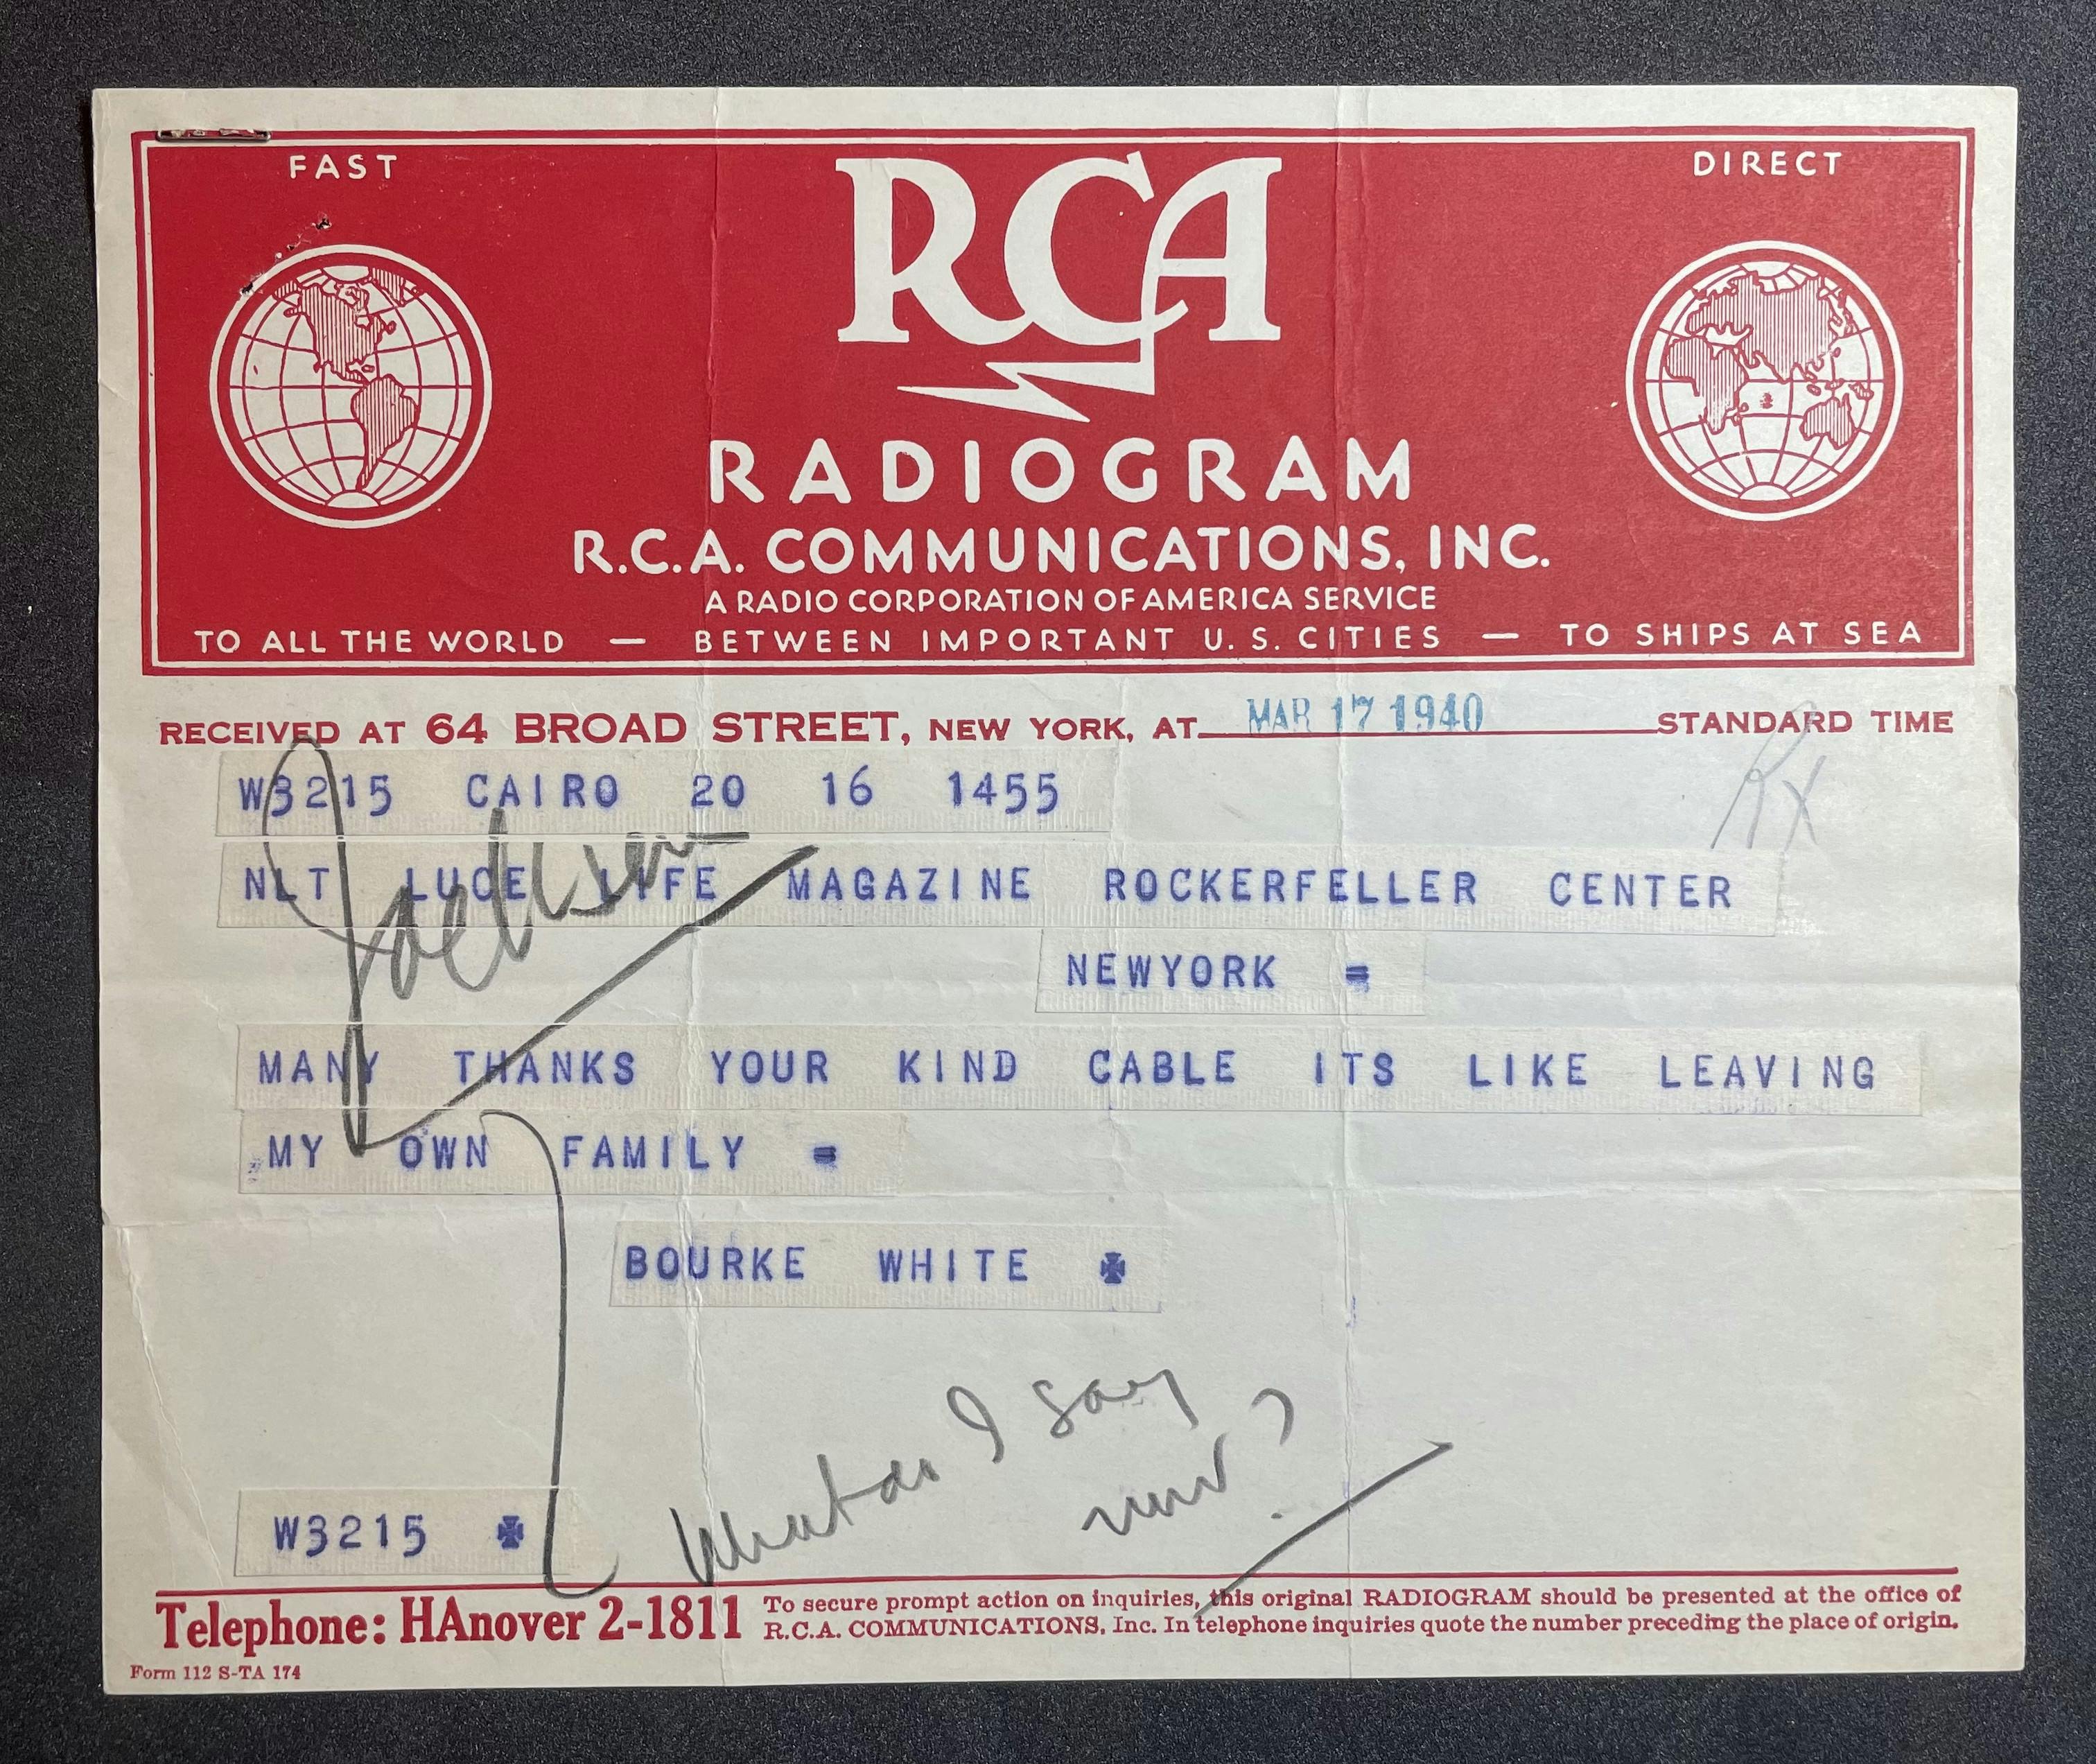 FAST
RCA
DIRECT
RADIOGRAM
R.C.A. COMMUNICATIONS, INC.
A RADIO CORPORATION OF AMERICA SERVICE
TO ALL THE WORLD — BETWEEN IMPORTANT U. S. CITIES — TO SHIPS AT SEA
RECEIVED AT 64 BROAD STREET, NEW YORK, AT MAR 17 1940 STANDARD TIME
Rx
W3215 CAIRO 20 16 1455
Jackson
NLT LUCE LIFE MAGAZINE ROCKERFELLER CENTER
NEWYORK =
MANY THANKS YOUR KIND CABLE ITS LIKE LEAVING
MY OWN FAMILY =
BOURKE WHITE
What do I say
now?
W3215
Telephone: HAnover 2-1811
To secure prompt action on inquiries, this original RADIOGRAM should be presented at the office of
R.C.A. COMMUNICATIONS, Inc. In telephone inquiries quote the number preceding the place of origin.
Form 112 S-TA 174